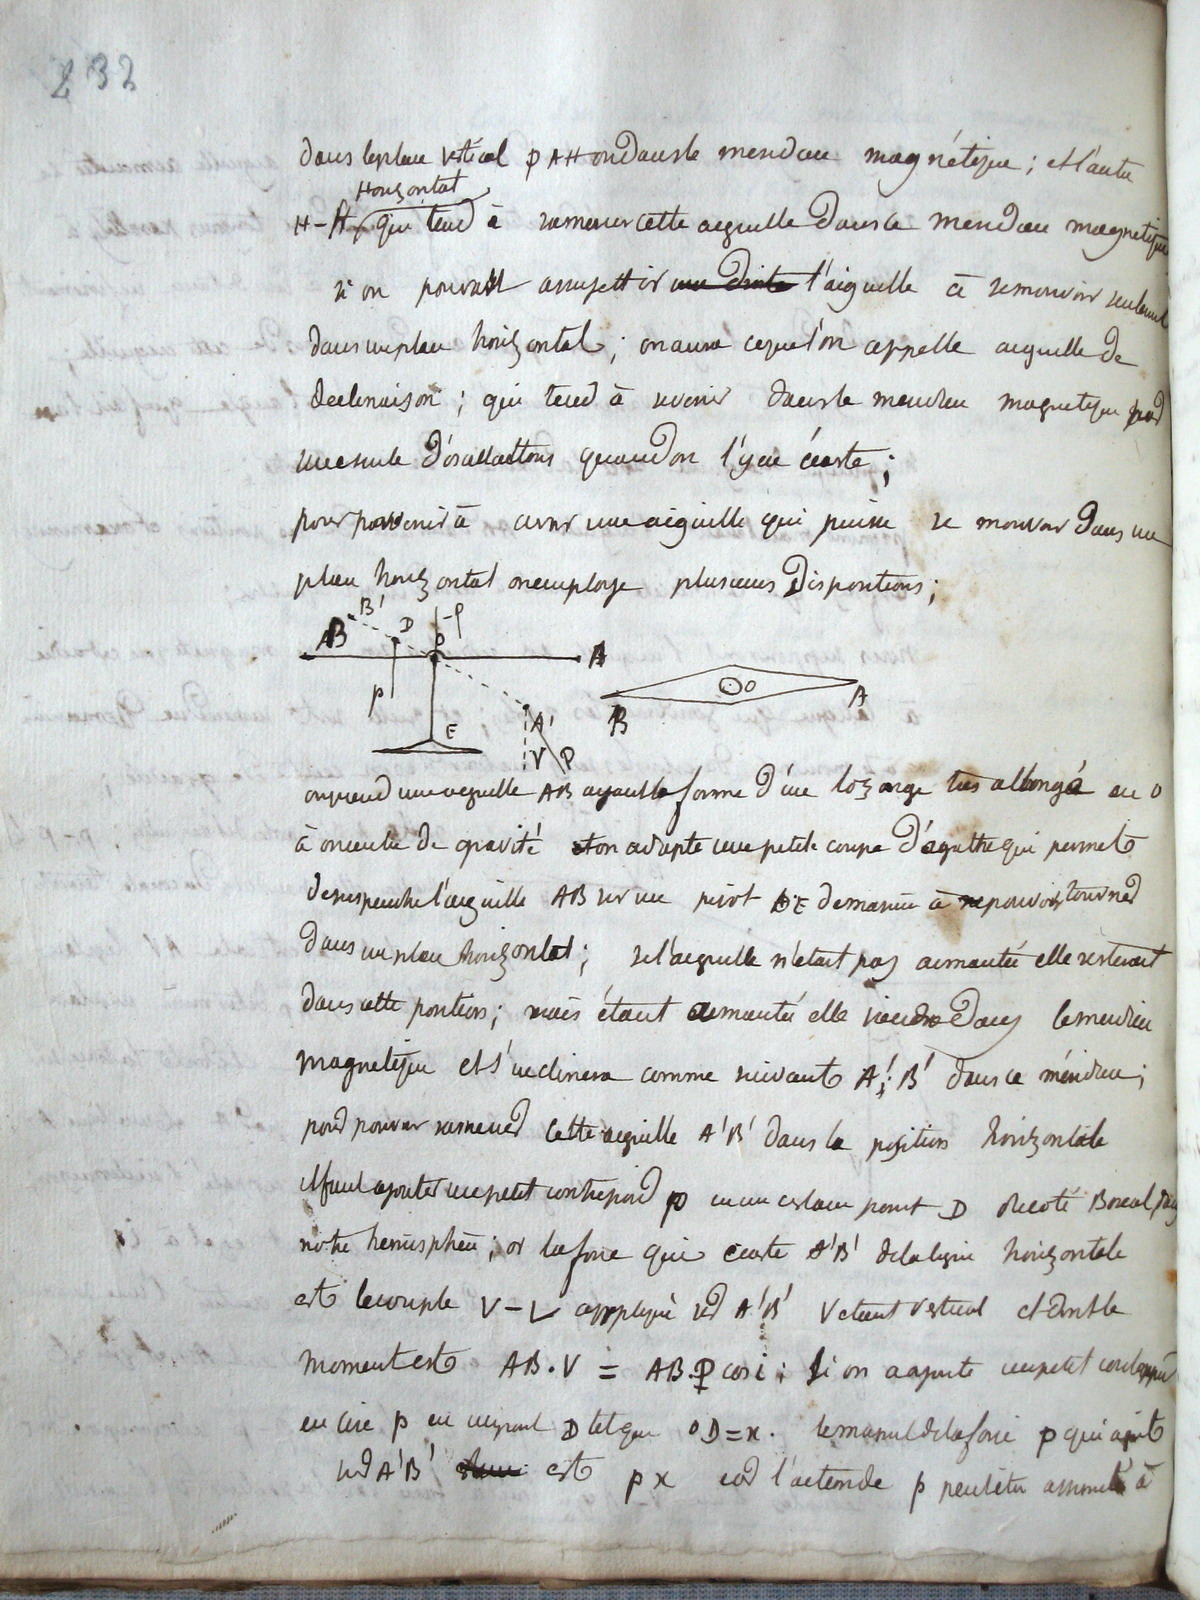 232
dans le plan vertical PAH ou dans le meridien magnétique ; et l'autre
Horizontal
H-H qui tend à ramener cette aiguille dans le meridien magnétique
si on pouvait assujettir une droite l'aiguille à se mouvoir seulement
dans un plan horizontal ; on aura ce que l'on appelle aiguille de
declinaison ; qui tend à revenir dans le meridien magnetique par
une suite d'oscillations quand on l'y a écarté ;
pour parvenir à avoir une aiguille qui puisse se mouvoir dans un
plan horizontal on employe plusieurs dispositions ;
B' D -P
B O A
P E A' V P
B O A
on prend une aiguille AB ayant la forme d'une lozange très allongé en O
à on centre de gravité et on adapte une petite coupe d'agathe qui permet
de suspendre l'aiguille AB sur un pivot DE de maniere à ne pouvoir tourner
dans un plan horizontal ; si l'aiguille n'etait pas aimantée elle resterait
dans cette position ; mais étant aimantée elle viendra dans le meridien
magnetique et s'inclinera comme suivant A' B' dans ce méridien ;
pour pouvoir ramener cette aiguille A'B' dans la position horizontale
il faut ajouter un petit contrepoid p en un certain point D du coté Boreal dans
notre hemisphere ; or la force qui ecarte A'B' de la ligne horizontale
est le couple V-V appliqué sur A'B' V etant vertical et dont le
moment est AB.V = AB.P cos i ; si on ajoute un petit contrepoid
en cire p en un point D tel que OD=x. le moment de la force p qui agit
sur A'B' est px car l'action de p peut être assimilé à